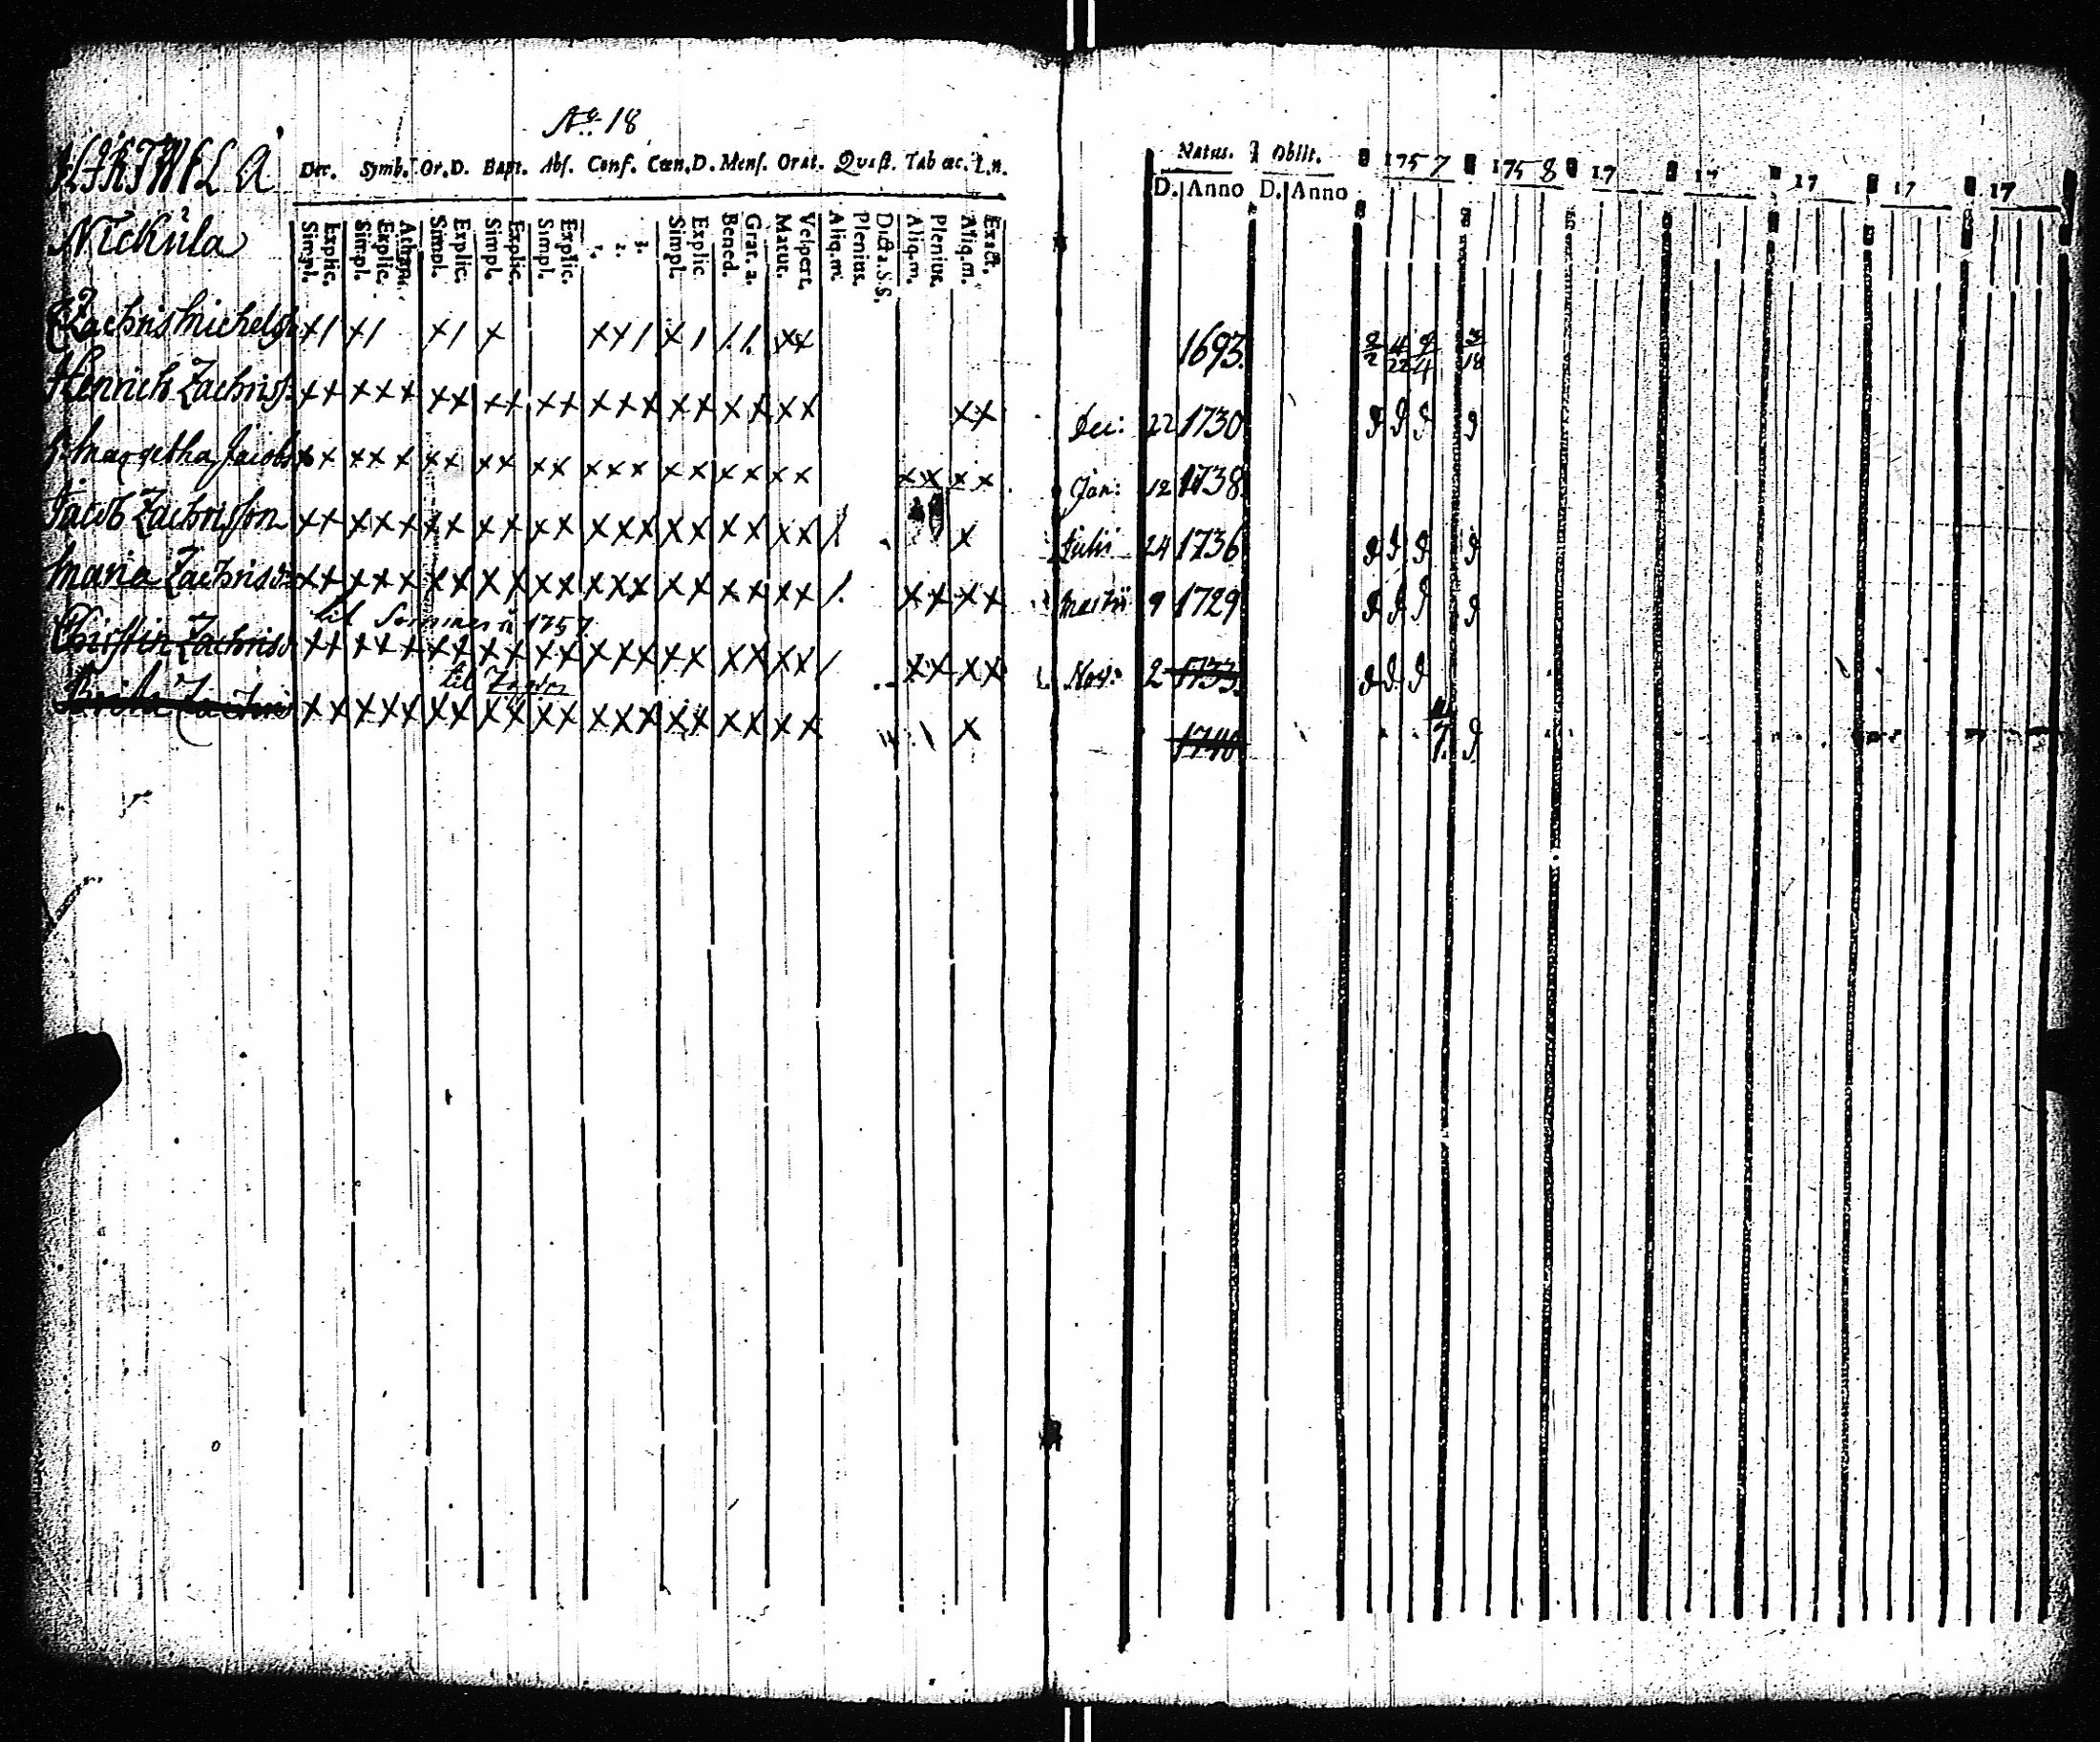 No 18
Nickula
Dec. Symb. Or.D. Bapt. Abs. Conf. Cœn.D. Mens. Orat. Quæst. Tab œc. L.n.
Simpl. Explic. Simpl. Explic. Athana. Simpl. Explic. Simpl. Explic. Simpl. Explic. 1. 2. 3. Simpl. Explic. Bened. Grat. a. Matut. Vespert. Aliq.m. Plenius. Dicta.S.S. Aliq.m. Plenius. Aliq.m. Exact.
Natus. Obiit. 1757 1758 17 17 17 17 17
D. Anno D. Anno
Zachris Michelss x1 x1 x1 x xx1 x1 1.1. xx 1693. 2/2 4/22 9/4 3/18
Henrich Zachriss. xx xxx xx xx xx xxx xx xx xx xx Dec: 22 1730
h. Margetha Jacobs xx xx x xx xx xx xxx xx xx xx xx xx Jan: 12 1738
Jacob Zachrisson xx xxx xx xx xx xxx xx xx xx / x Julii 24 1736
Maria Zachrisd xx xxx xx xx xx xxx xx xx xx /. xx xx Martii 9 1729
til Sommen 1757
Christin Zachrisd xx xxx xx xx xx xxx xx xx xx / xx xx Nov: 2 1733.
til
Brita Zachris xx xxx xx xx xx xxx xx xx xx x 1740